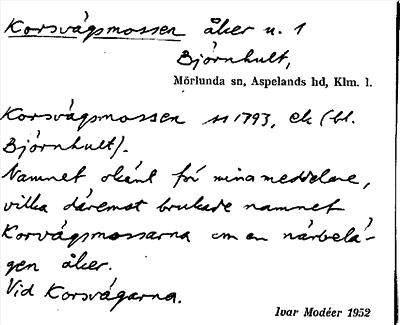 Korsvägsmossen åker u. 1
Björnhult,
Mörlunda sn, Aspelands hd, Klm. l.
Korsvägsmossen 1793, ek (bl.
Björnhult).
Namnet okänt för mina meddelare,
vilka däremot brukade namnet
Korvägsmossarna om en närbelä-
gen åker.
Vid Korsvägarna.
Ivar Modéer 1952